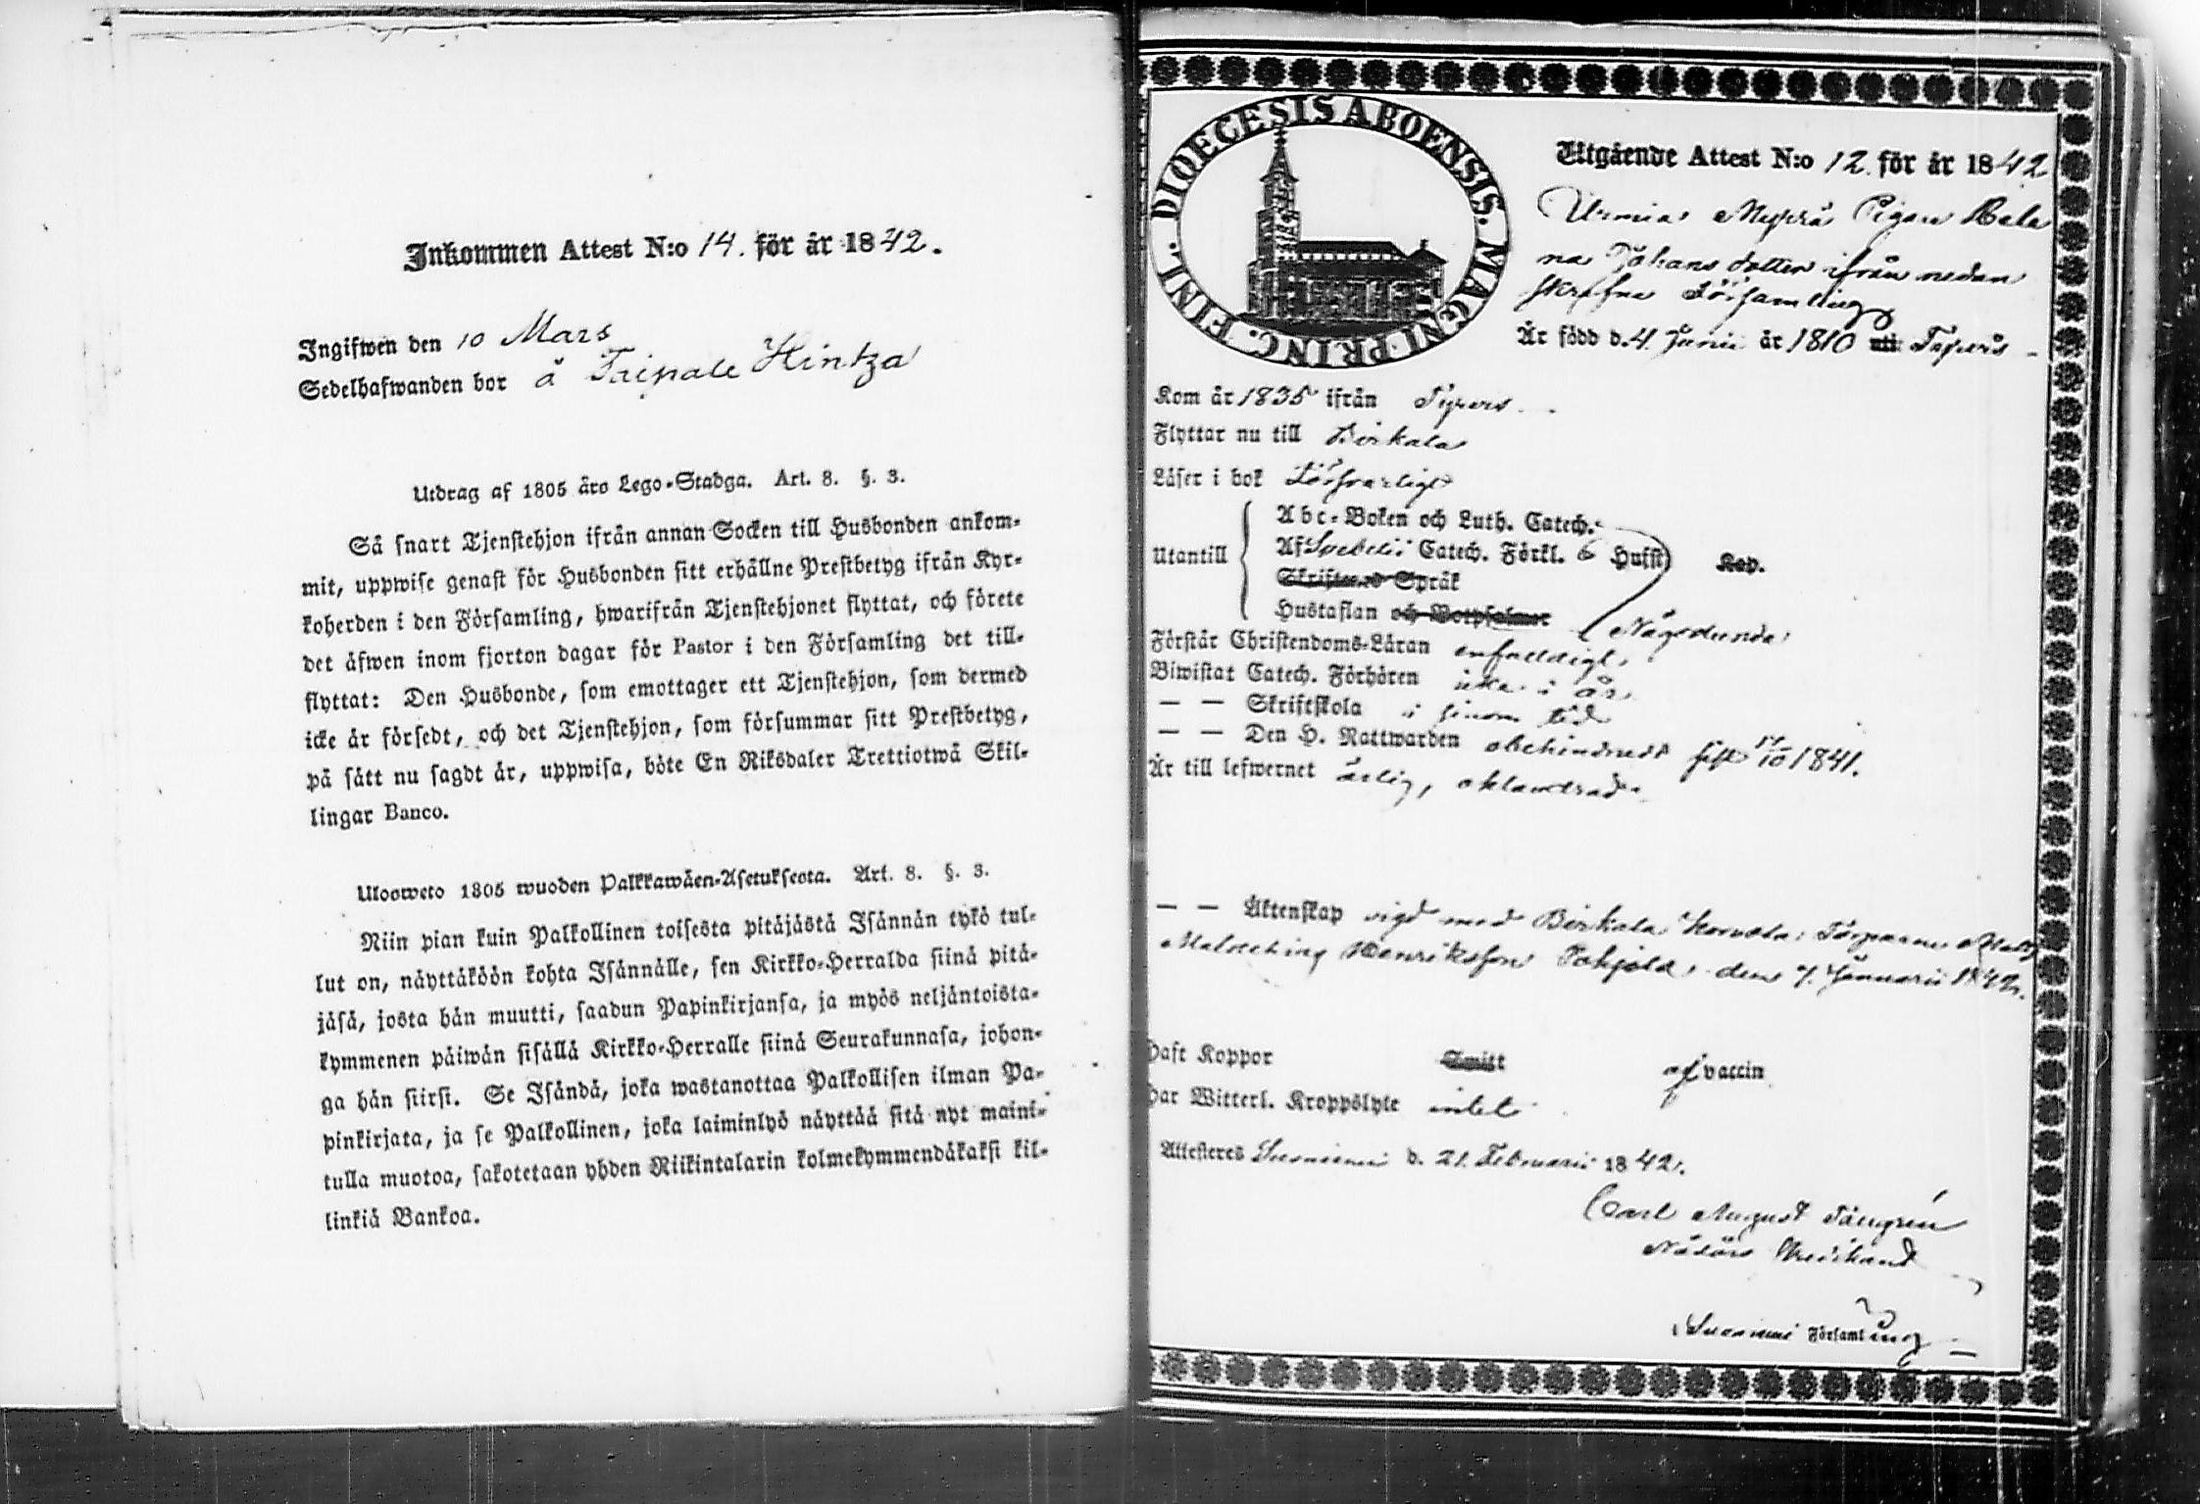 Inkommen Attest N:o 14. för år 1842.
Ingifwen den 10 Mars
Sedelhafwanden bor å Taipale Hintza
Utdrag af 1805 års Lego-Stadga. Art. 8. §. 3.
Så snart Tjenstehjon ifrån annan Socken till Husbonden ankom-
mit, uppwise genast för Husbonden sitt erhållne Prestbetyg ifrån Kyr-
koherden i den Församling, hwarifrån Tjenstehjonet flyttat, och förete
det äfwen inom fjorton dagar för Pastor i den Församling det till-
flyttat: Den Husbonde, som emottager ett Tjenstehjon, som dermed
icke är försedt, och det Tjenstehjon, som försummar sitt Prestbetyg,
på sätt nu sagdt är, uppwisa, böte En Riksdaler Trettiotwå Skil-
lingar Banco.
Ulosweto 1805 wuoden Palkkawäen-Asetuksesta. Art. 8. §. 3.
Niin pian kuin Palkollinen toisesta pitäjästä Isännän tykö tul-
lut on, näyttäköön kohta Isännälle, sen Kirkko-Herralda siinä pitä-
jäsä, josta hän muutti, saadun Papinkirjansa, ja myös neljäntoista-
kymmenen päiwän sisällä Kirkko-Herralle siinä Seurakunnasa, johon-
ga hän siirsi. Se Isändä, joka wastanottaa Palkollisen ilman Pa-
pinkirjata, ja se Palkollinen, joka laiminlyö näyttää sitä nyt maini-
tulla muotoa, sakotetaan yhden Riikintalarin kolmekymmendäkaksi kil-
linkiä Bankoa.
DIOECESIS ABOENSIS. MAGNI PRINC. FINL.
Utgående Attest N:o 12. för år 1842
Pigan Hele
na Johans dotter ifrån nedan
skrefne Församling
Är född d. 4 Junii år 1810 uti
Kom år 1835 ifrån
Flyttar nu till Birkala
Läser i bok Försvarligt
Utantill
Abc-Boken och Luth. Catech.
Af Svebelii Catech. Förkl. 6 Hufst. Kap.
Skriftens Språk
Hustaflan och Botpsalmer Någorlunda
Förstår Christendoms-Läran enfaldigt
Biwistat Catech. Förhören icke i år
— — Skriftskola i sinom tid
— — Den H. Nattwarden obehindrad sist 17/10 1841.
Är till lefwernet ärlig, oklandrad
— — Äktenskap vigd med Birkala Torparen Matts
Malachias Henriksson Pohjola den 7. Januarii 1842.
Haft Koppor Smitt af vaccin
Har Witterl. Kroppslyte intet
Attesteres Suoniemi d. 21. Februarii 1842.
Carl August
Suoniemi Församling